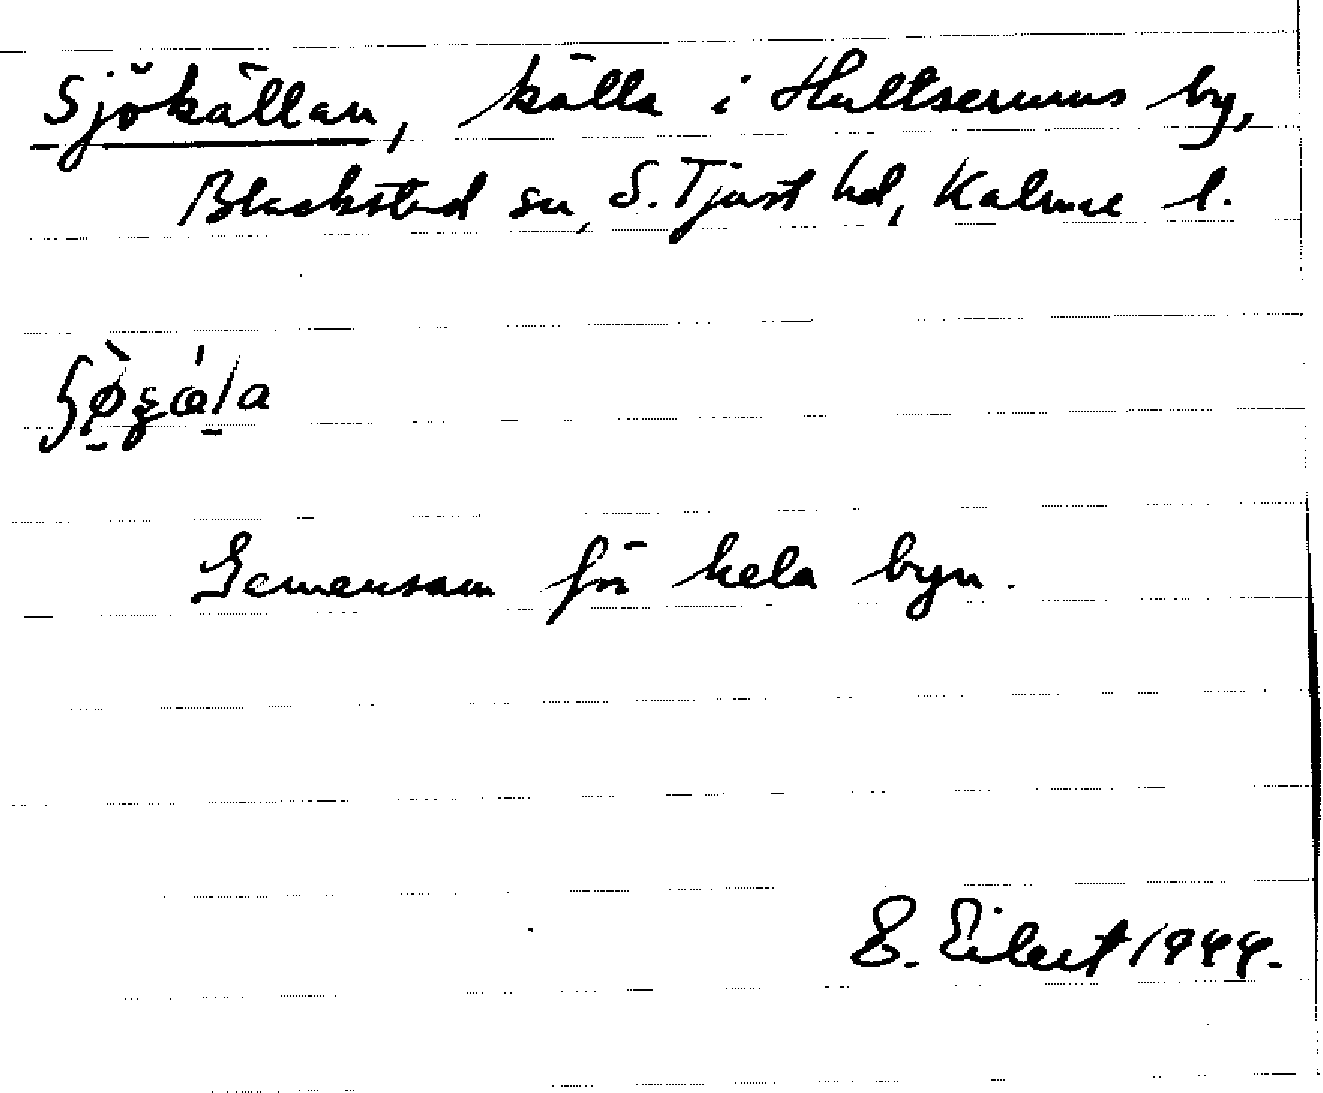 Sjökällan, källa i Hultserums by,
Blackstad sn, S. Tjust hd, Kalmar l.
Gemensam för hela byn.
E. Eilert 1944.